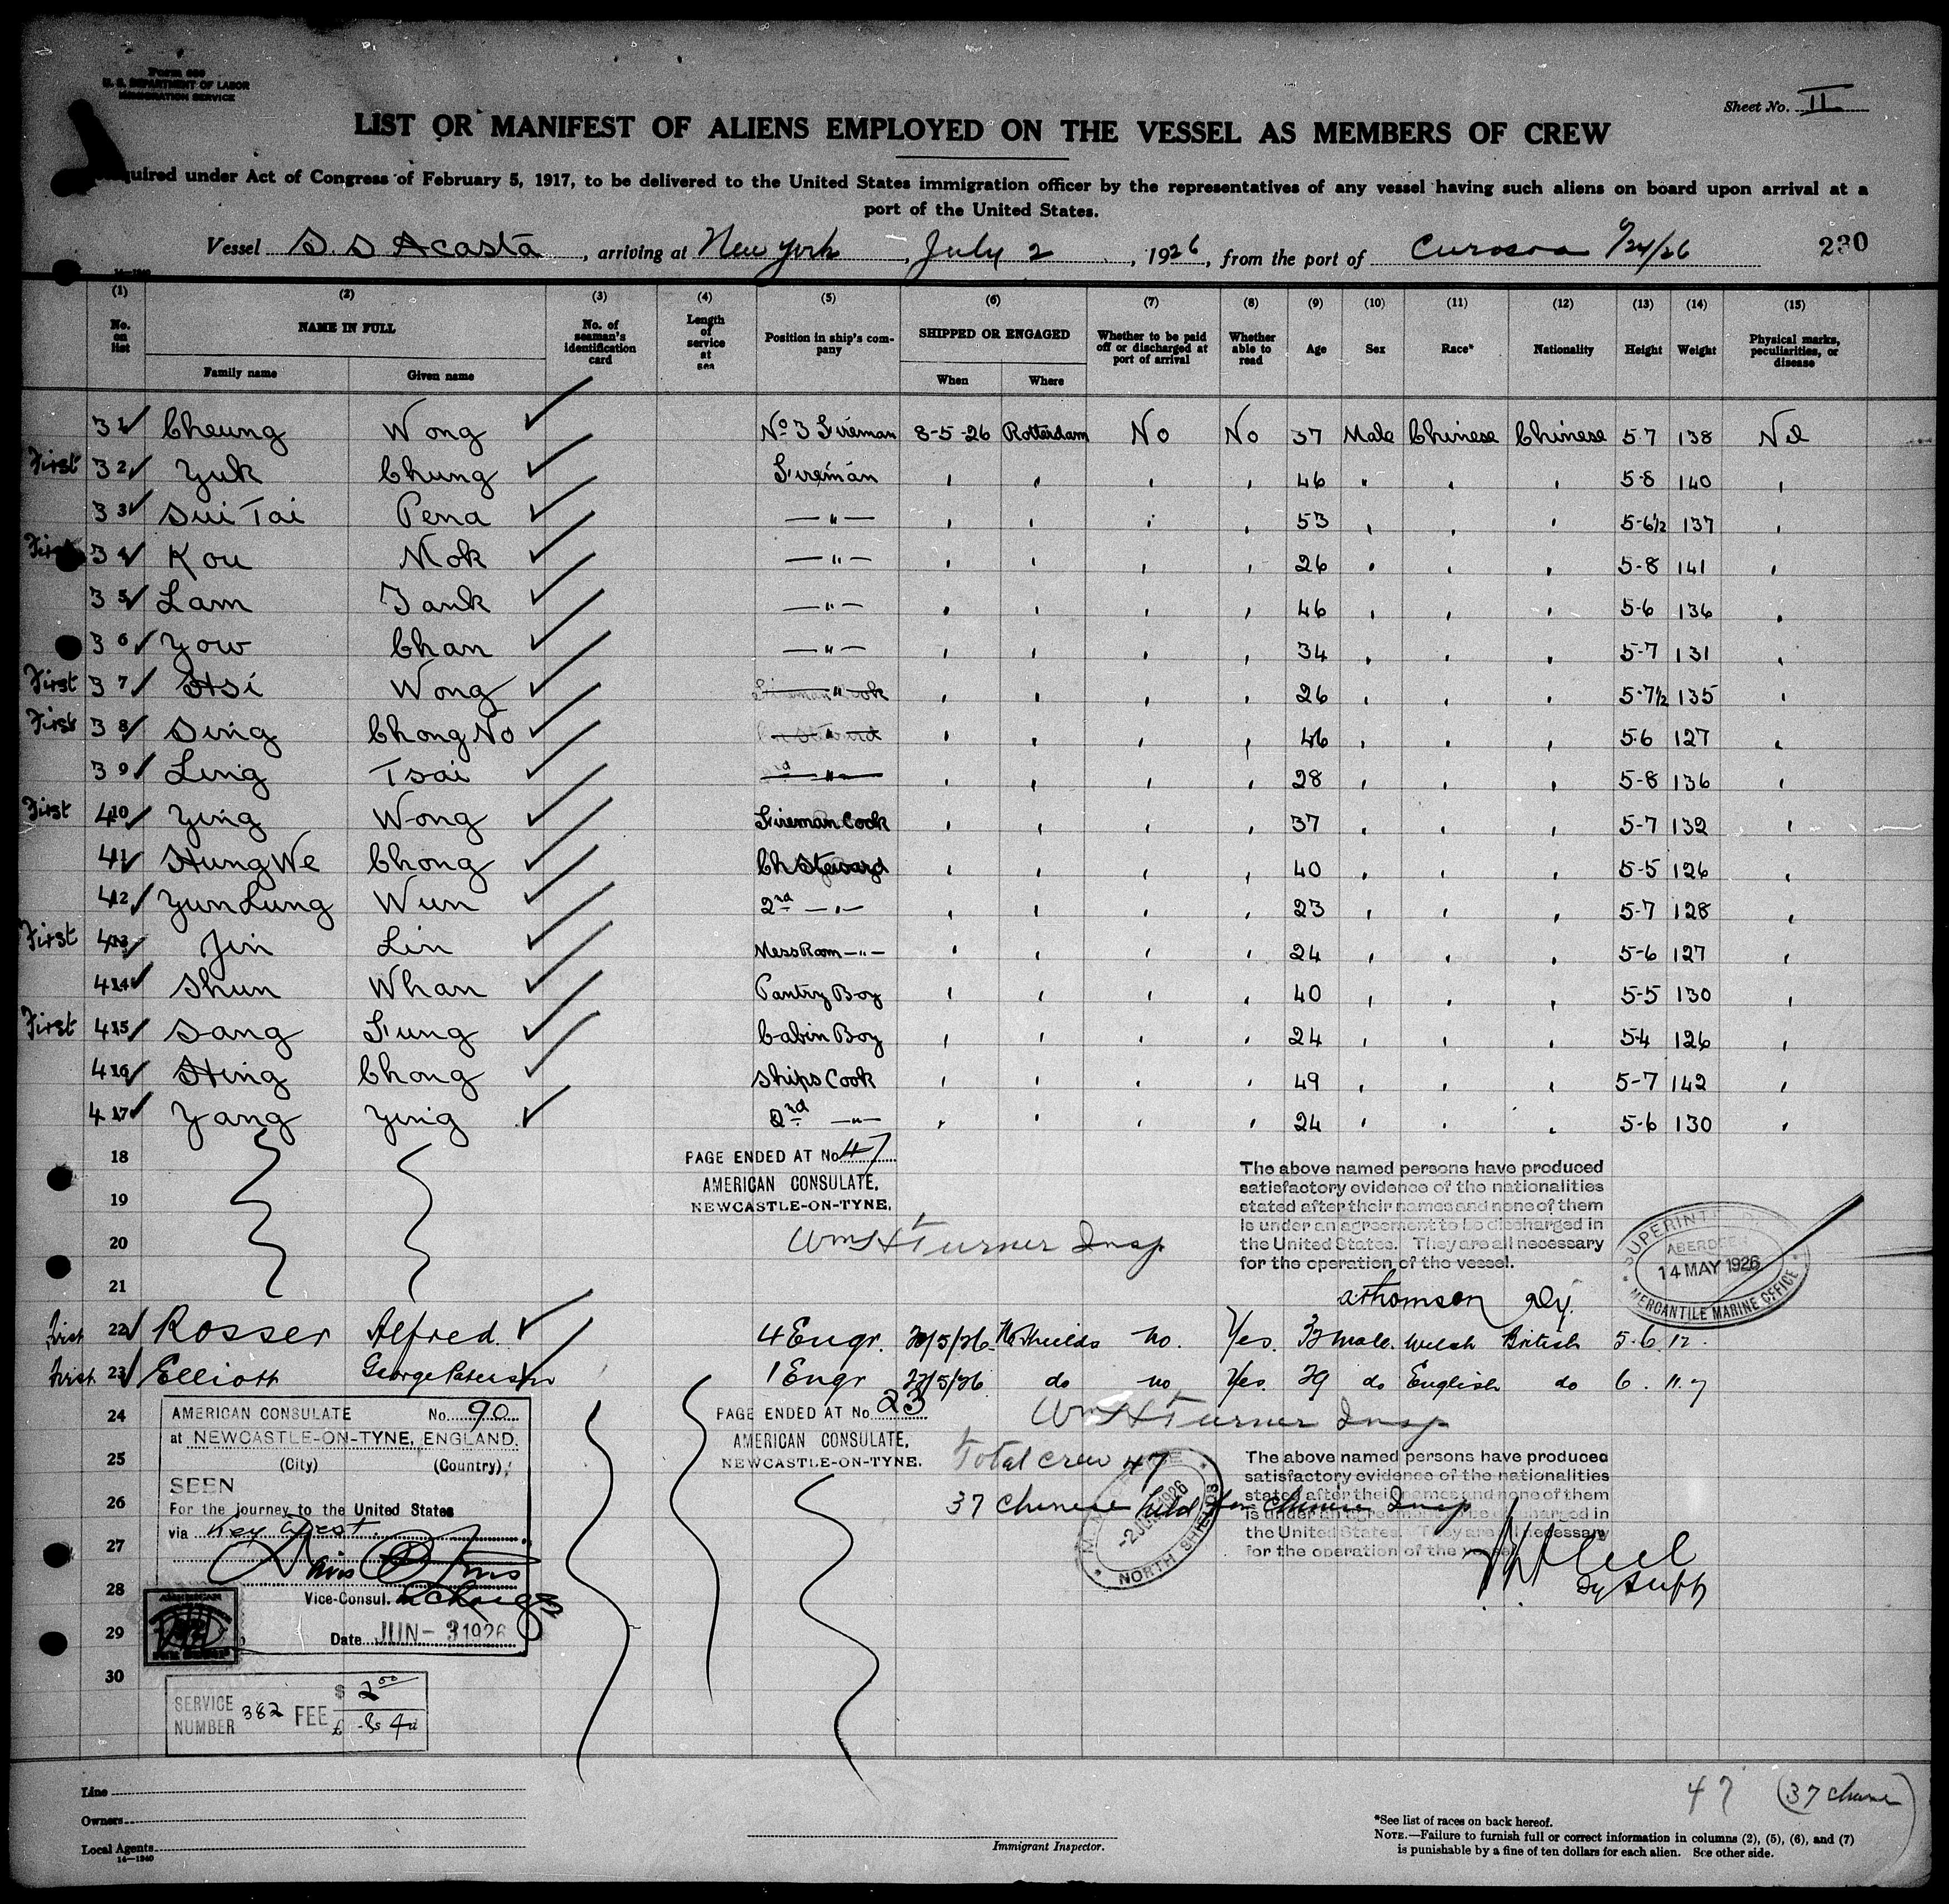 Form 680
U. S. DEPARTMENT OF LABOR
IMMIGRATION SERVICE
Sheet No. II
LIST OR MANIFEST OF ALIENS EMPLOYED ON THE VESSEL AS MEMBERS OF CREW
Required under Act of Congress of February 5, 1917, to be delivered to the United States immigration officer by the representatives of any vessel having such aliens on board upon arrival at a
port of the United States.
Vessel S.S Acasta, arriving at New York, July 2, 1926, from the port of Curosoa 6/24/26 230
14-1240
(1) No. on list (2) NAME IN FULL Family name Given name (3) No. of seaman's identification card (4) Length of service at sea (5) Position in ship's company (6) SHIPPED OR ENGAGED When Where (7) Whether to be paid off or discharged at port of arrival (8) Whether able to read (9) Age (10) Sex (11) Race* (12) Nationality (13) Height (14) Weight (15) Physical marks, peculiarities, or disease
31 Cheung Wong No 3 Fireman 8-5-26 Rotterdam No No 37 Male Chinese Chinese 5-7 138 Nil
First 32 Yuk Chung Fireman " " " " 46 " " " 5-8 140 "
33 Sui Tai Pena — " — " " " " 53 " " " 5-6½ 137 "
First 34 Kou Mok — " — " " " " 26 " " " 5-8 141 "
35 Lam Tank — " — " " " " 46 " " " 5-6 136 "
36 Yow Chan — " — " " " " 34 " " " 5-7 131 "
First 37 Hsi Wong — " — " " " " 26 " " " 5-7½ 135 "
First 38 Sing Chong No — " — " " " " 46 " " " 5-6 127 "
39 Ling Tsai — " — " " " " 28 " " " 5-8 136 "
First 40 Ying Wong Fireman Cook " " " " 37 " " " 5-7 132 "
41 Hung We Chong Ch Steward " " " " 40 " " " 5-5 126 "
42 Yun Lung Wun 2nd — " — " " " " 23 " " " 5-7 128 "
First 43 Jin Lin Mess Room — " — " " " " 24 " " " 5-6 127 "
44 Shun Whan Pantry Boy " " " " 40 " " " 5-5 130 "
First 45 Sang Fung Cabin Boy " " " " 24 " " " 5-4 126 "
46 Hing Chong Ships Cook " " " " 49 " " " 5-7 142 "
47 Yang Ying 2nd — " — " " " " 24 " " " 5-6 130 "
18
19
20
21
PAGE ENDED AT No. 47
AMERICAN CONSULATE,
NEWCASTLE-ON-TYNE.
Wm H Turner Insp
The above named persons have produced
satisfactory evidence of the nationalities
stated after their names and none of them
is under an agreement to be discharged in
the United States. They are all necessary
for the operation of the vessel.
A Thomson Dy.
SUPERINTENDENT
ABERDEEN
14 MAY 1926
MERCANTILE MARINE OFFICE
First 22 Rosser Alfred. 4 Engr. /5/26 No Shields no. Yes. 32 male. Welsh British 5.6. 12.
First 23 Elliott George Paterson 1 Engr 27/5/26 do no Yes. 39 do English do 6. 11.7
24
25
26
27
28
29
30
AMERICAN CONSULATE No. 90
at NEWCASTLE-ON-TYNE, ENGLAND.
(City) (Country)
SEEN
For the journey to the United States
via Key West
Vice-Consul. in Charge
Date JUN - 3 1926
AMERICAN
SERVICE NUMBER 382 FEE $ 2.00
£ -8s 4d
PAGE ENDED AT No. 23
AMERICAN CONSULATE,
NEWCASTLE-ON-TYNE.
Wm H Turner Insp
Total crew 47
37 Chinese held for Chinese Insp
-2 JUN 1926
NORTH SHIELDS
The above named persons have produced
satisfactory evidence of the nationalities
stated after their names and none of them
is under an agreement to be discharged in
the United States. They are all necessary
for the operation of the vessel
Dy Supt
47 (37 Chinese)
Line
Owners
Local Agents
14-1240
Immigrant Inspector.
*See list of races on back hereof.
NOTE.—Failure to furnish full or correct information in columns (2), (5), (6), and (7)
is punishable by a fine of ten dollars for each alien. See other side.